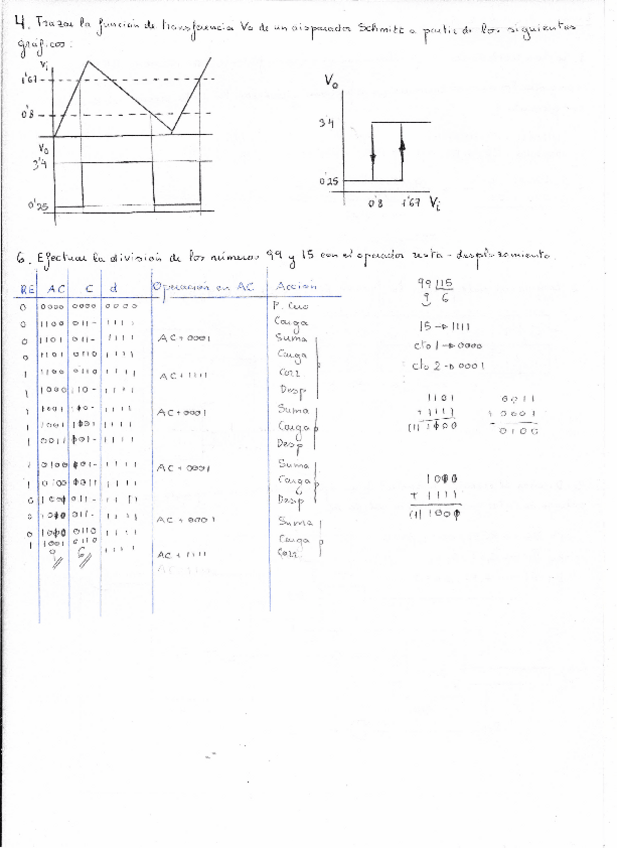 4. Trazar la función de transferencia Vo de un disparador Schmitt a partir de los siguientes
gráficos:
Vi
1'67
0'8
Vo
3'4
0'25
Vo
3'4
0'25
0'8 1'67 Vi
6. Efectuar la división de los números 99 y 15 con el operador resta-desplazamiento.
RE AC C d Operación en AC Acción
0 0000 0000 0000 P. Cero
0 1100 011- 1111 Carga
0 1101 011- 1111 AC+0001 Suma
0 1101 0110 1111 Carga
1 1100 0110 1111 AC+1111 Corr
1 1000 110- 1111 Desp
1 1001 1111 AC+0001 Suma
1 1001 1111 Carga
1 0011 1111 Desp
1 0100 1111 AC+0001 Suma
1 0100 1111 Carga
0 011- 1111 Desp
0 011- 1111 AC+0001 Suma
0 0110 1111 Carga
1 1001 0110 1111 AC+1111 Corr
9 6
99 15
9 6
15 → 1111
cto 1 → 0000
cto 2 → 0001
1101 0011
+ 1111 + 0001
(1) 1100 0100
+ 1111